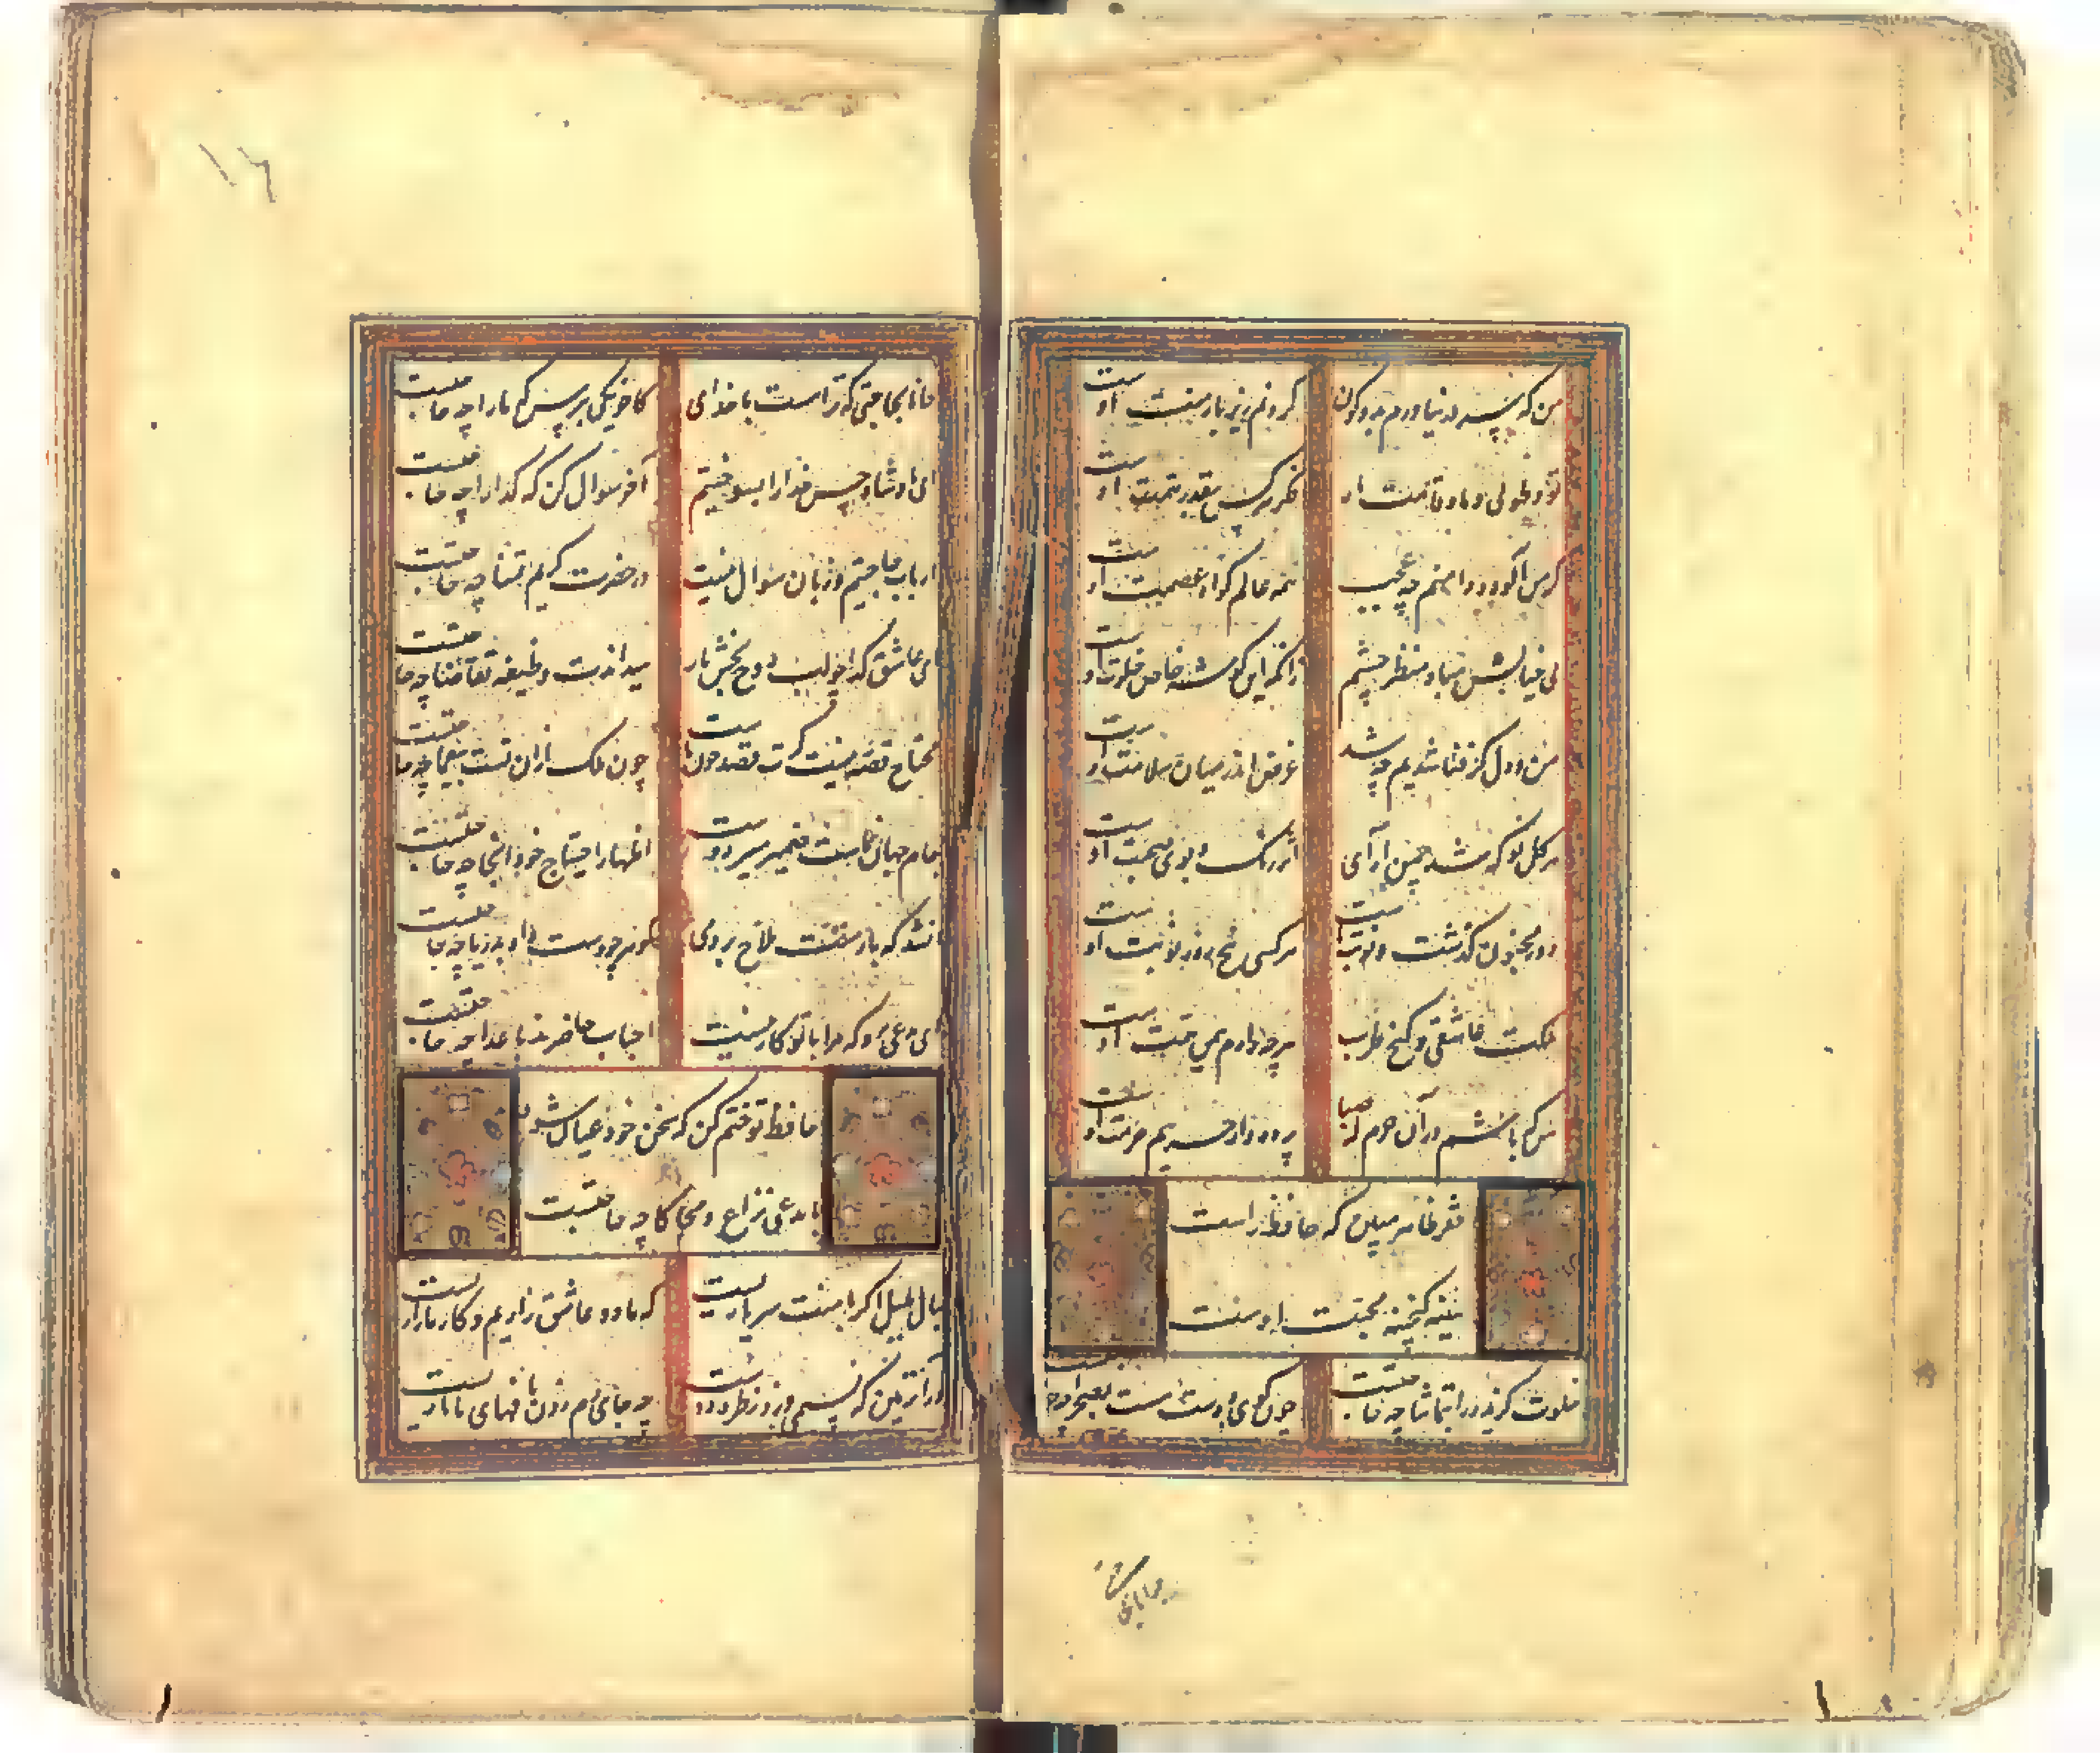 من که سر در نیاورم بدو کون گردنم زیر بار منت اوست
تو و طوبی و ما و قامت او فکر هرکس بقدر همت اوست
گر من آلوده دامنم چه عجب همه عالم گواه عصمت اوست
بی خیالش مباد منظر چشم زانکه این گوشه خاص خلوت اوست
من و دل گر فنا شدیم چه شد غرض اندر میان سلامت اوست
هر گل نو که شد چمن آرای اثر رنگ و بوی صحبت اوست
دور مجنون گذشت و نوبت ماست هر کسی پنج روز نوبت اوست
ملکت عاشقی و گنج طرب هر چه دارم یمن همت اوست
من که باشم در آن حرم که صبا پرده دار حریم حرمت اوست
فقر ظاهر مبین که حافظ را ست
سینه گنجینه محبت اوست
خلوت گزیده را بتماشا چه حاجتست چون کوی دوست هست بصحرا چه
جانا بحاجتی که ترا هست با خدای کاخر دمی بپرس که ما را چه حاجتست
ای پادشاه حسن خدا را بسوختیم آخر سوال کن که گدا را چه حاجتست
ارباب حاجتیم و زبان سوال نیست در حضرت کریم تمنا چه حاجتست
ای عاشق گدا چو لب روح بخش یار میداندت وظیفه تقاضا چه حاجتست
محتاج قصه نیست گرت قصد خون ماست چون ملک ازان تست بیغما چه حاجتست
جام جهان نماست ضمیر منیر دوست اظهار احتیاج خود آنجا چه حاجتست
آن شد که بار منت ملاح بردمی گوهر چو دست داد بدریا چه حاجتست
ای مدعی برو که مرا با تو کار نیست احباب حاضرند باعدا چه حاجتست
حافظ تو ختم کن که سخن خود عیان شود
با مدعی نزاع و محاکا چه حاجتست
بنال بلبل اگر با منت سر یاریست که ما دو عاشق زاریم و کار ما زاریست
در آن زمین که نسیمی وزد ز طره دوست چه جای دم زدن نافهای تاتاریست